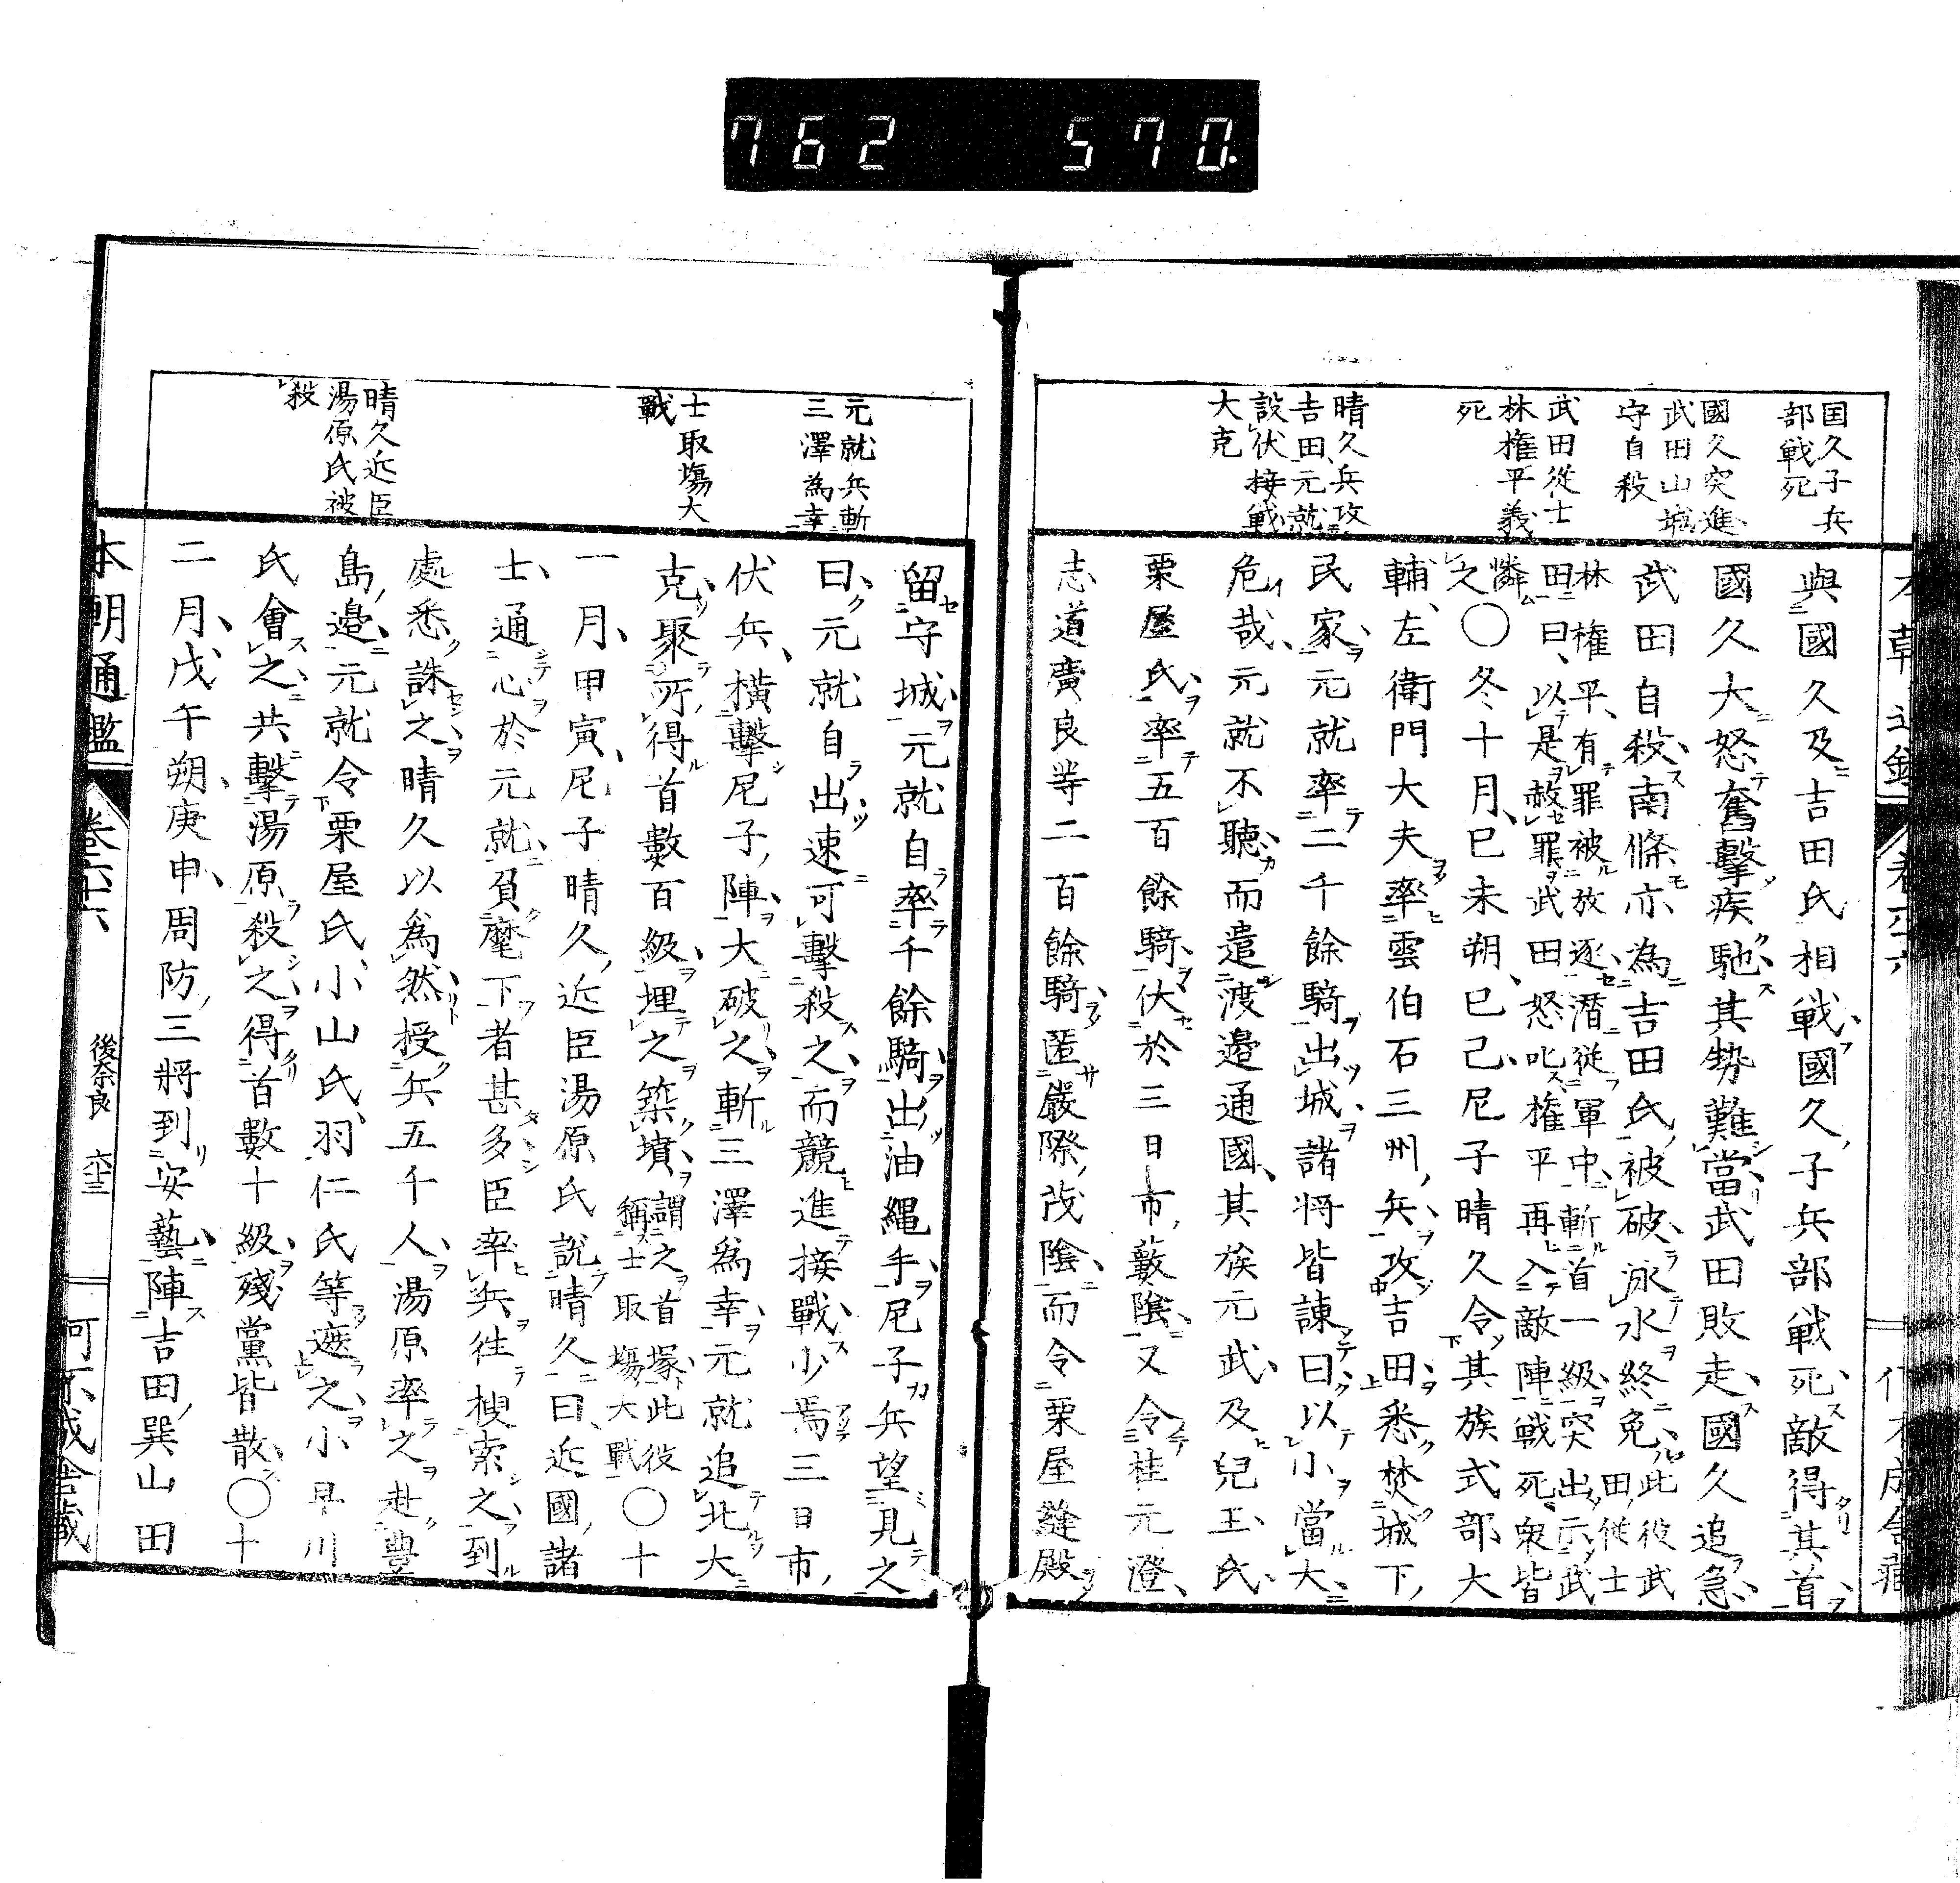 762 570.
国久子兵
部戦死
國久突進
武田山城
守自殺
武田從士
林権平義
死
晴久兵攻
吉田元就
設伏接戦
大克
與國久及吉田氏相戦國久子兵部戦死敵得其首
國久大怒奮擊疾馳其勢難當武田敗走國久追急
武田自殺南條亦為吉田氏被破泳水終免此役武田從士
林権平有罪被放逐潛從軍中斬首一級突出示武
田曰以是赦罪武田怒叱権平再入敵陣戦死衆皆
憐
之〇冬十月巳未朔己巳尼子晴久令其族式部大
輔左衛門大夫率雲伯石三州兵攻吉田悉焚城下
民家元就率二千餘騎出城諸将皆諫曰以小當大
危哉元就不聽而遣渡邉通國其族元武及兒玉氏
栗屋氏率五百餘騎伏於三日市藪陰又令桂元澄
志道廣良等二百餘騎匿巖際茂陰而令栗屋縫殿
元就兵斬
三澤為幸
士取塲大
戰
晴久近臣
湯原氏被
殺
留守城元就自率千餘騎出油縄手尼子兵望見之
曰元就自出速可擊殺之而競進接戰少焉三日市
伏兵橫擊尼子陣大破之斬三澤爲幸元就追北大
克聚所得首數百級埋之築墳謂之首塚此役
稱士取塲大戰〇十
一月甲寅尼子晴久近臣湯原氏說晴久曰近國諸
士通心於元就負麾下者甚多臣率兵徃搜索之到
處悉誅之晴久以爲然授兵五千人湯原率之赴豐
島邉元就令栗屋氏小山氏羽仁氏等遮之小早川
氏會之共擊湯原殺之得首數十級殘黨皆散〇十
二月戊午朔庚申周防三將到安藝陣吉田巽山田
本朝通鑑 卷六十六 後奈良 六十三